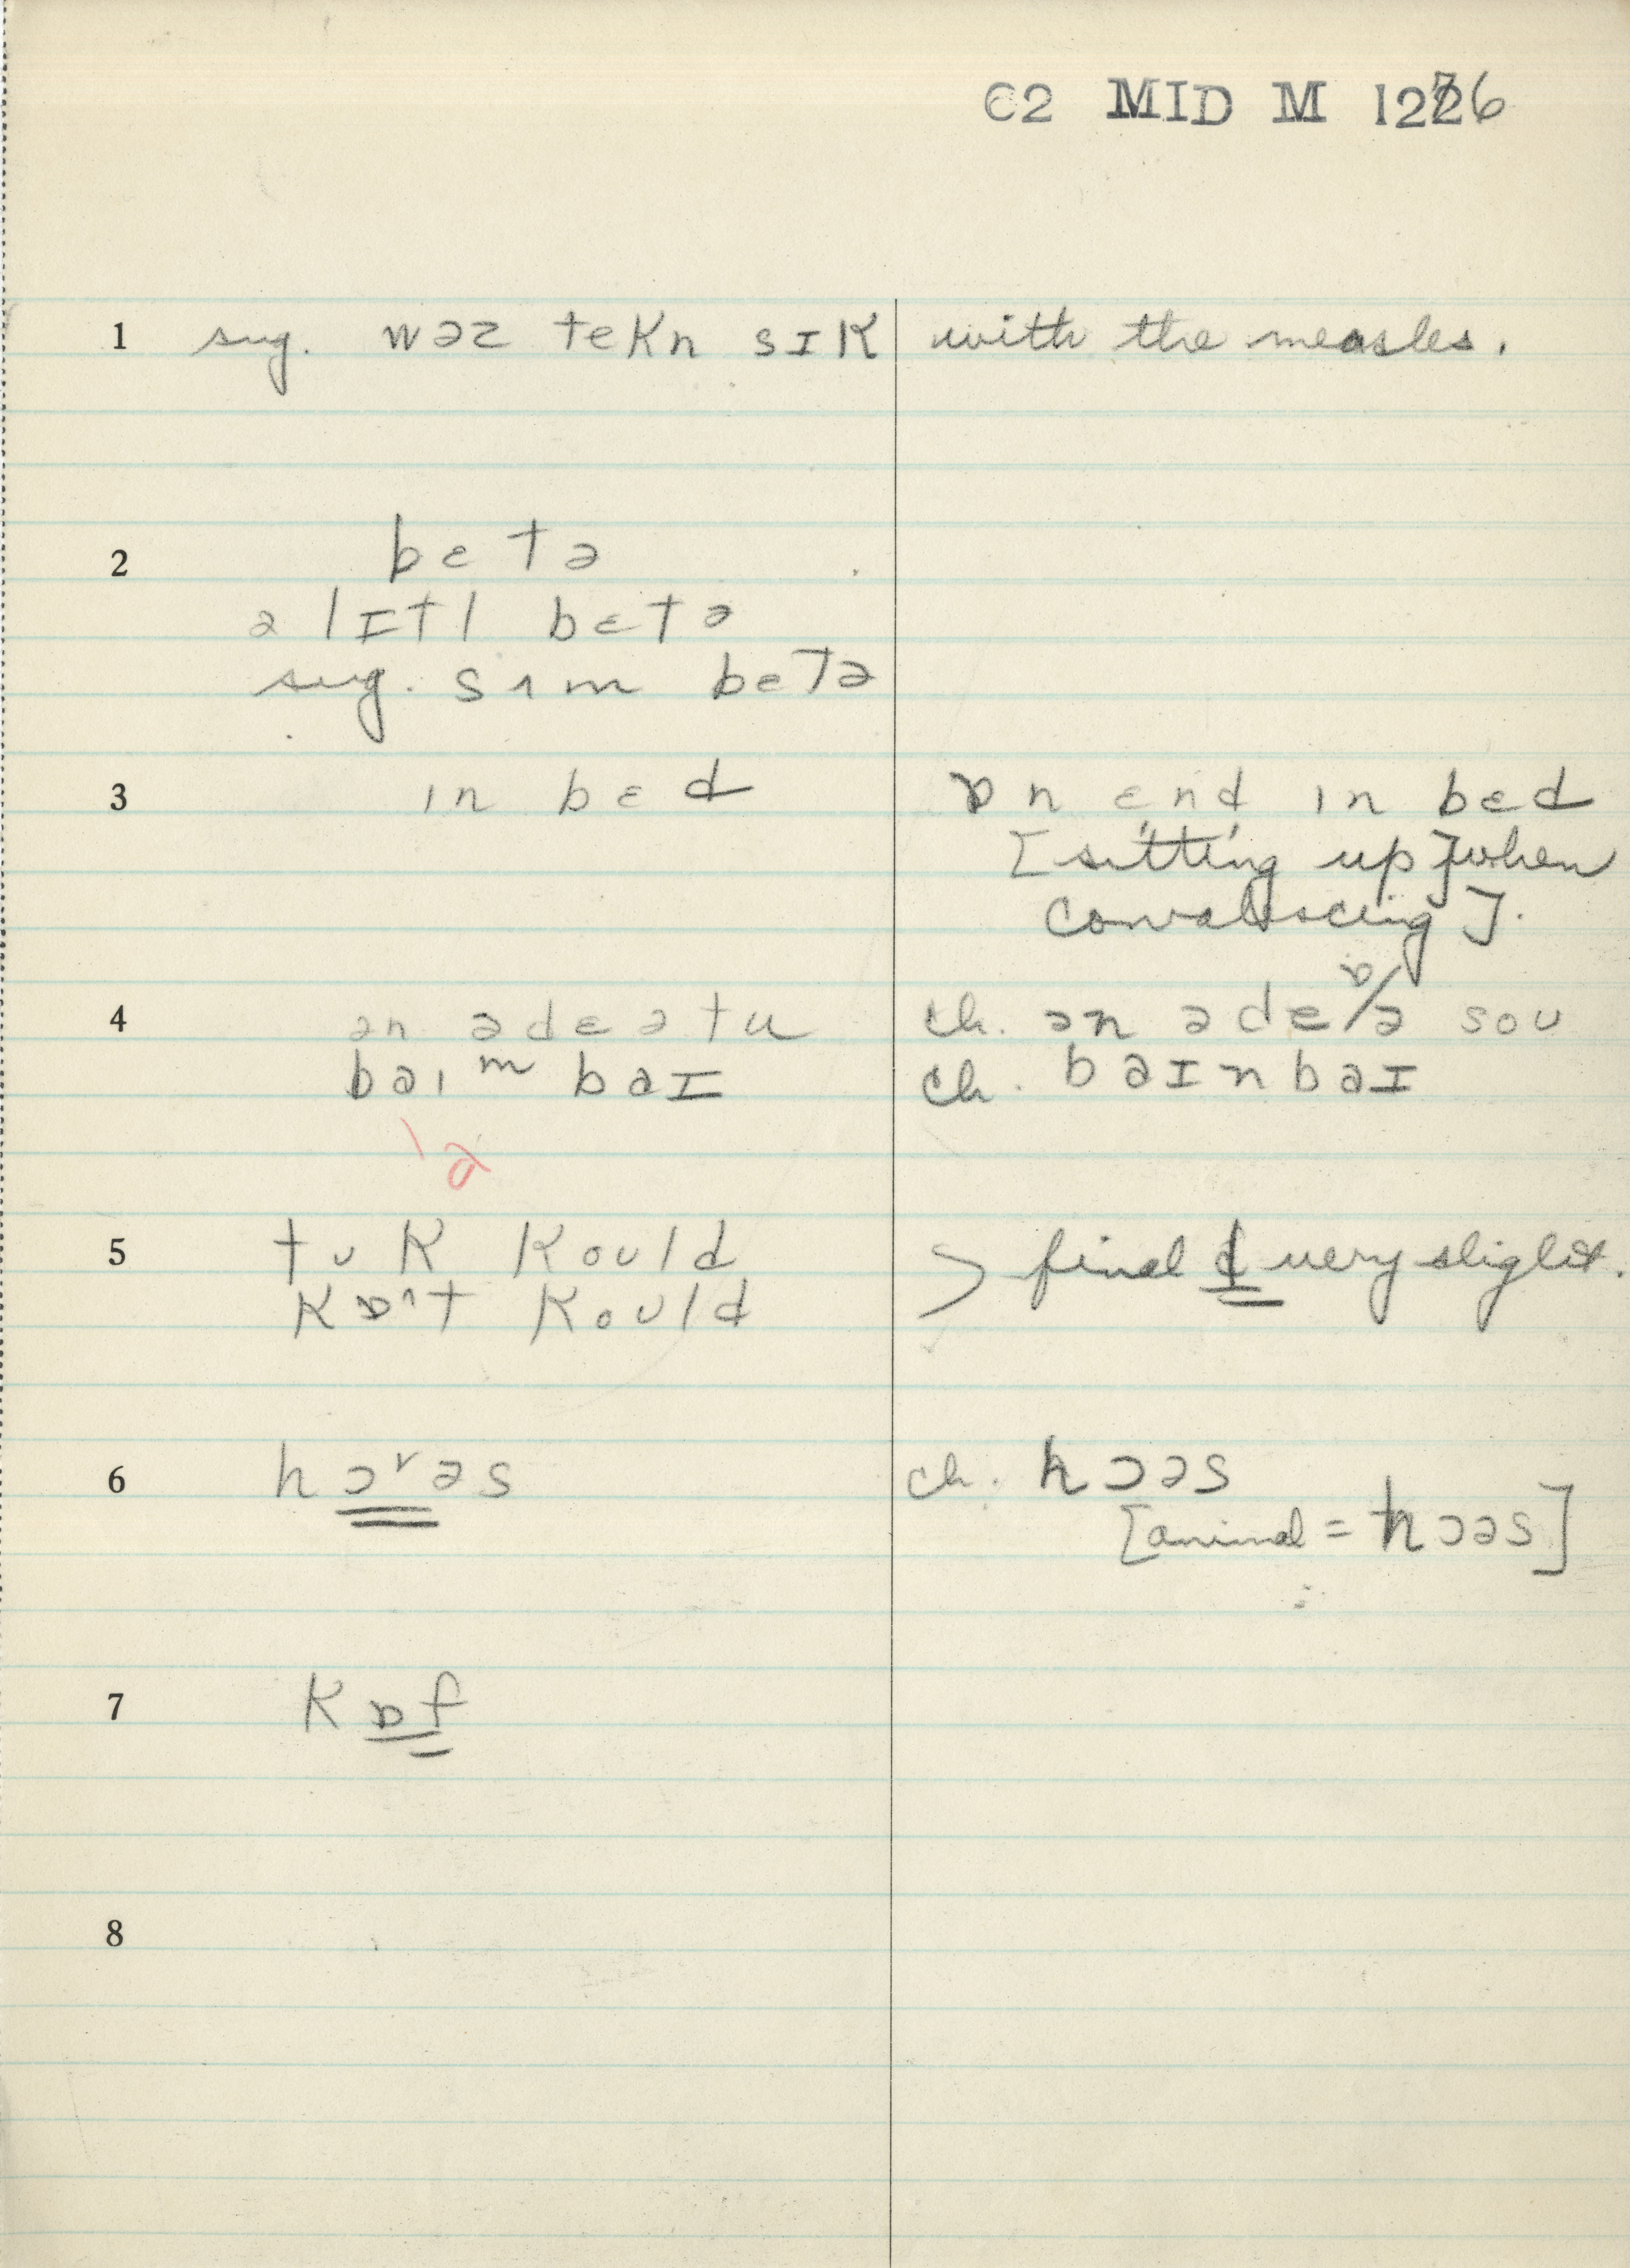 62 MID M 1276
1 sug. wəz tekn sɪk with the measles.
2 bɛtə
ə lɪtl bɛtə
sug. sʌm betə
3 ɪn bɛd ɒn ɛnd ɪn bɛd
[sitting up] when
convalescing].
4 ən ə deə tu ch. ən ə deɒ/ə soʊ
baɪ m baɪ ch. baɪnbaɪ
a
5 tʊk koʊld > final d very slight.
kɒʌt koʊld
6 hɔʳəs ch. hɔəs
[animal = hɔəs]
7 kɒf
8